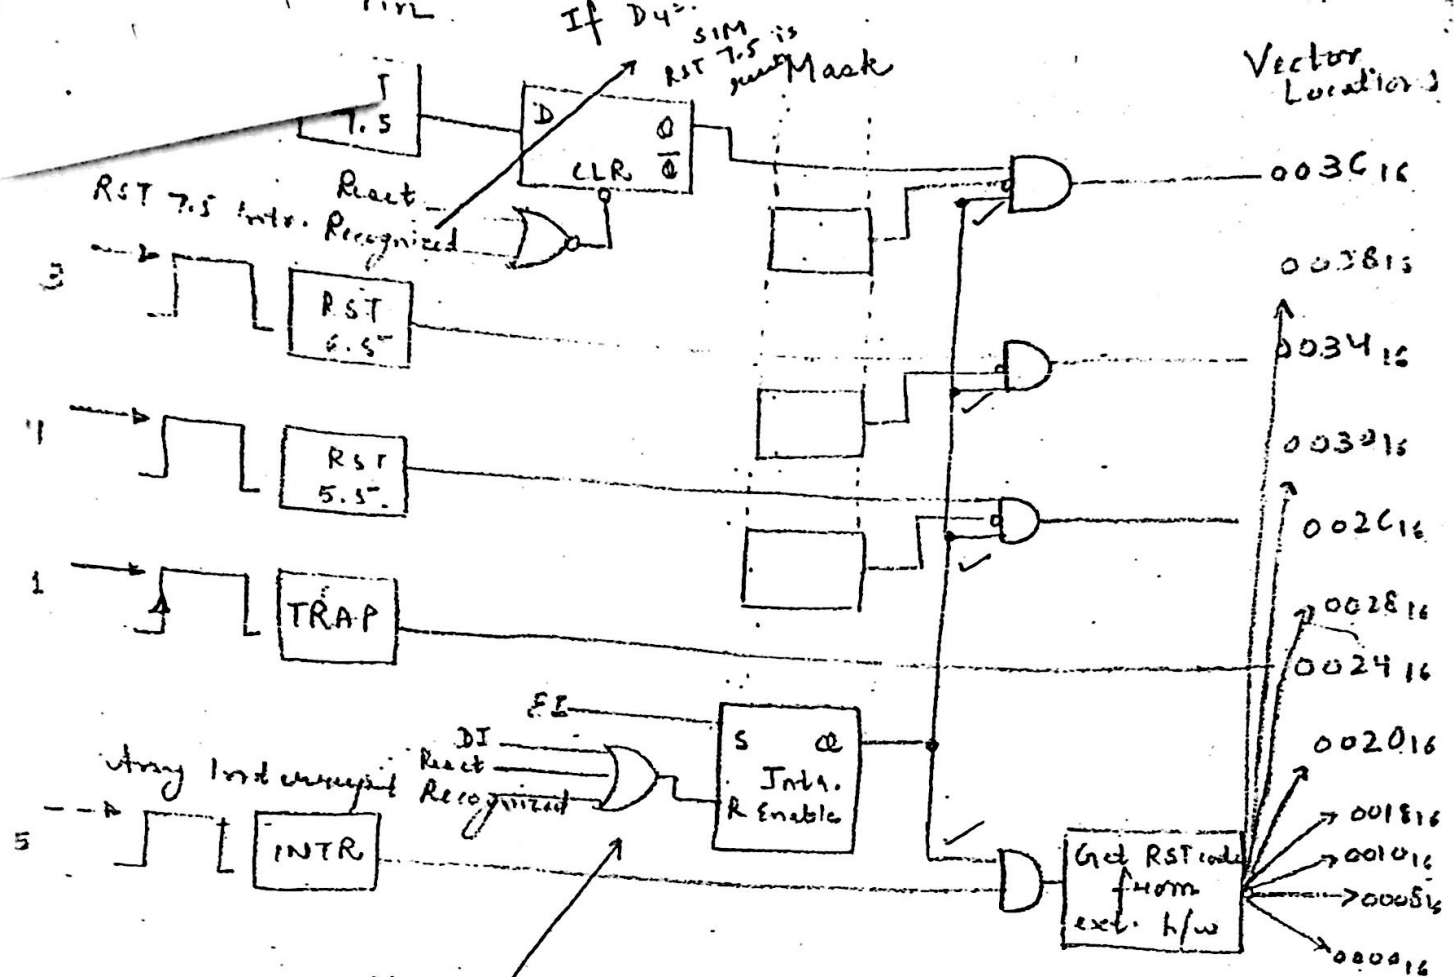 If D4=
SIM
RST 7.5 is
Mask
Vector
Locations
T
7.5
D
Q
Q̅
CLR
003C16
Reset
RST 7.5 Intr. Recognized
003816
3
RST
6.5
003416
4
RST
5.5
003016
002C16
1
TRAP
002816
002416
EI
DI
Reset
Any Interrupt Recognized
S Q
Intr.
R Enable
002016
001816
001016
000816
000016
5
INTR
Get RST code
from
ext. h/w